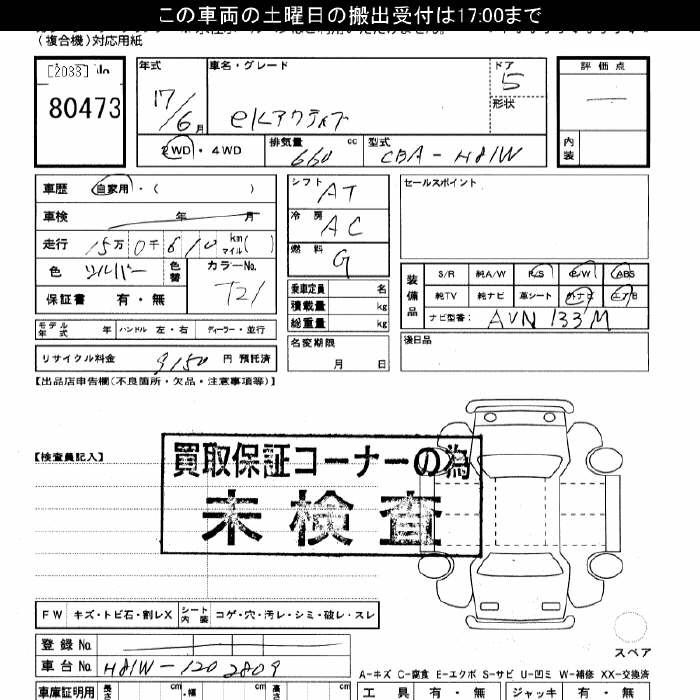 この車両の土曜日の搬出受付は17:00まで
(複合機)対応用紙
[2033] No
80473
年式
17/6月
車名・グレード
eKアクティブ
ドア
5
形状
評価点
内装
2WD・4WD
排気量
660 cc
型式
CBA-H81W
車歴 自家用・( )
車検 年 月
走行 15万0千610 km マイル( )
色 シルバー
色替
カラーNo.
T21
保証書 有・無
シフト
AT
冷房
AC
燃料
G
乗車定員 名
積載量 kg
総重量 kg
セールスポイント
装備品
S/R 純A/W P/S P/W ABS
純TV 純ナビ 革シート 外ナビ
ナビ型番: AVN 133M
モデル年式 年 ハンドル 左・右 ディーラー・並行
名変期限
月 日
後日品
リサイクル料金 9150 円 預託済
【出品店申告欄(不良箇所・欠品・注意事項等)】
【検査員記入】
買取保証コーナーの為
未検査
FW キズ・トビ石・割レX シート内装 コゲ・穴・汚レ・シミ・破レ・スレ
スペア
登録No.
車台No. H81W-1202809
A-キズ C-腐食 E-エクボ S-サビ U-凹ミ W-補修 XX-交換済
車庫証明用 長さ cm ・幅 cm 高さ cm
工具 有・無 ジャッキ 有・無